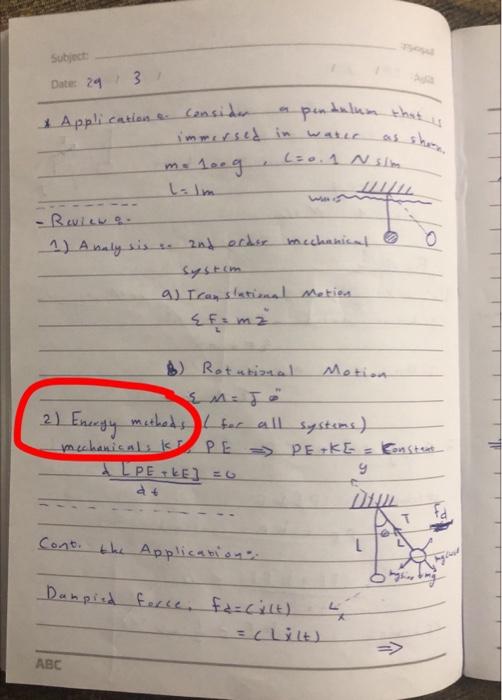 Subject:
Date: 29 / 3 /
* Application:- Consider a pendulum that is
immersed in water as shown
m = 100g , C = 0.1 N s/m
L = 1m
- Review:-
1) Analysis:- 2nd order mechanical
system
a) Translational Motion
Σ F = m z̈
b) Rotational Motion
Σ M = J θ̈
2) Energy methods (for all systems)
mechanical: KE, PE ⇒ PE + KE = Constant
d [PE + KE] = 0
dt
y
T Fd
θ
L L
mg
Cont. the Application:-
Dampied force, fd = C ẋ(t)
x
= C L ẋ(t)
⇒
ABC